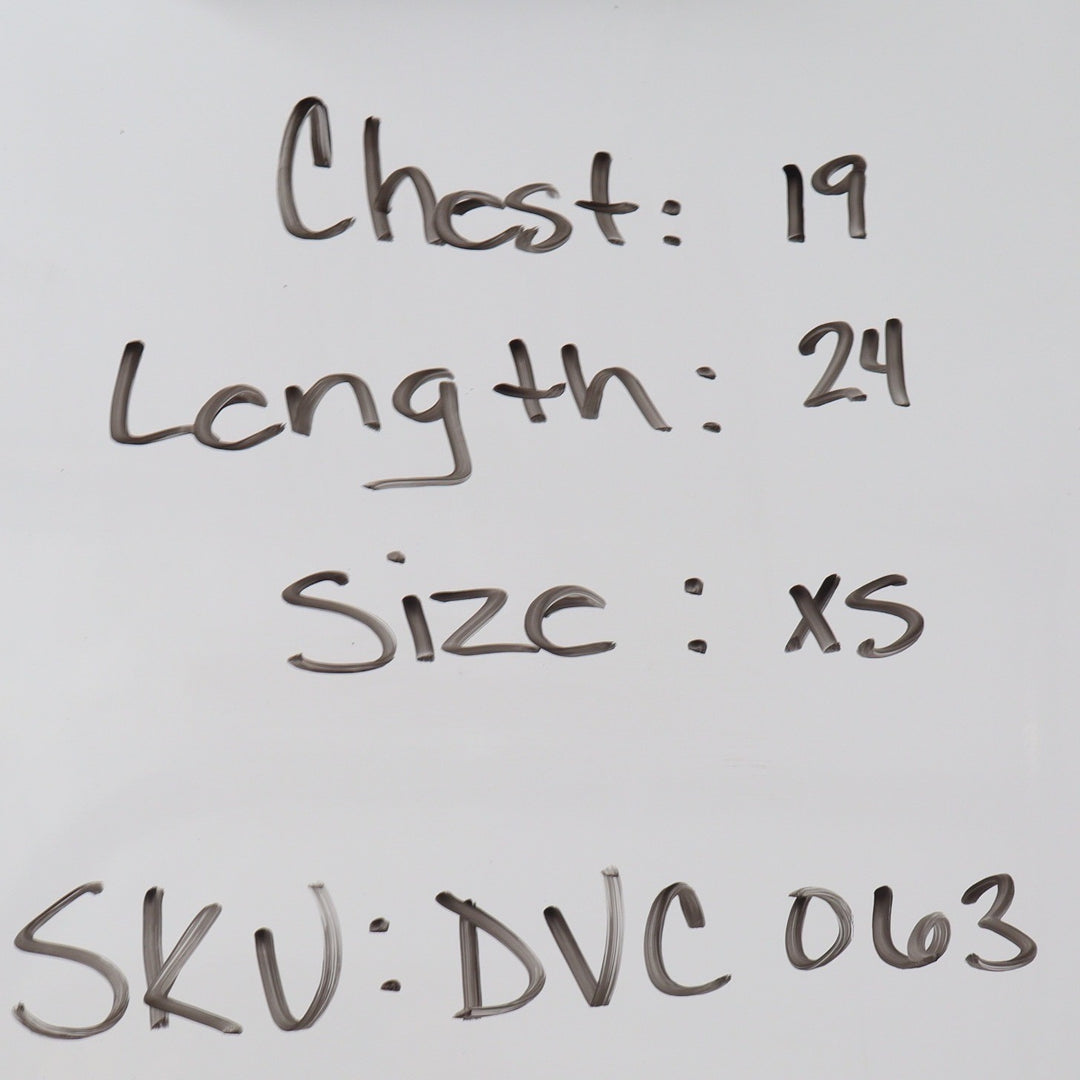 Chest: 19
Length: 24
Size: XS
SKU: DVC 063